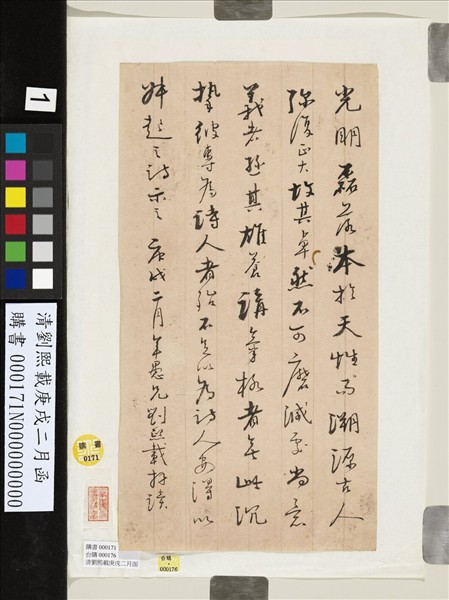 光明磊落本於天性而溯源古人
彌復正大故其卓然不可磨滅至尚意
義者遜其雄養講氣格者無此沉
摯彼專為詩人者殆不足以為詩人安得以
起之詩示之 庚戌二月年愚兄劉熙載拜讀
1
清劉熙載庚戌二月函
購書 000171N000000000
購書
0171
購書 000171
台購 000176
清劉熙載庚戌二月函
台購
000176